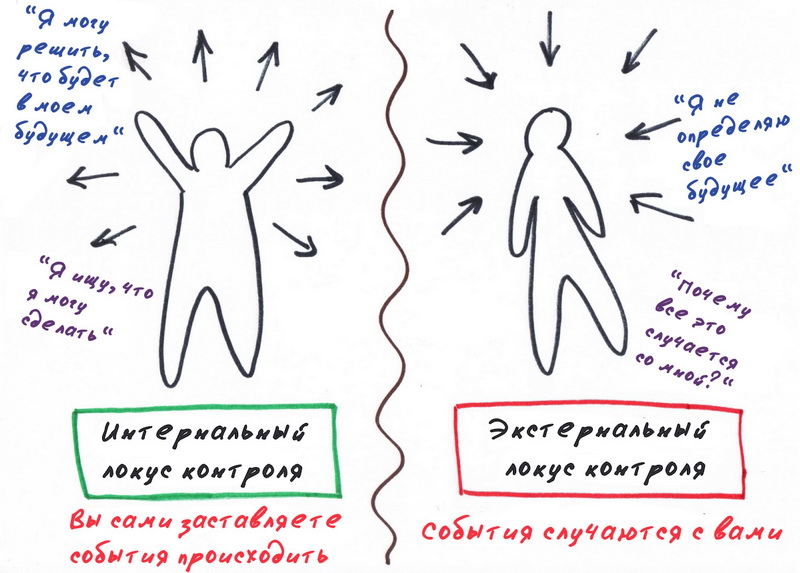 "Я могу
решить,
что будет
в моем
будущем"
"Я ищу, что
я могу
сделать"
Интернальный
локус контроля
Вы сами заставляете
события происходить
"Я не
определяю
свое
будущее"
"Почему
все это
случается
со мной?"
Экстернальный
локус контроля
События случаются с вами